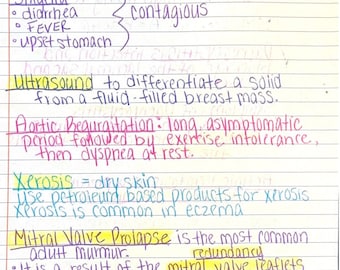 • diarrhea
• FEVER
• upset stomach
contagious
Ultrasound to differentiate a solid
from a fluid-filled breast mass.
Aortic Regurgitation: long, asymptomatic
period followed by exertise intolerance,
then dyspnea at rest.
Xerosis = dry skin
use petroleum based products for xerosis
xerosis is common in eczema
Mitral Valve Prolapse is the most common
adult murmur. redundancy
• It is a result of the mitral valve leaflets